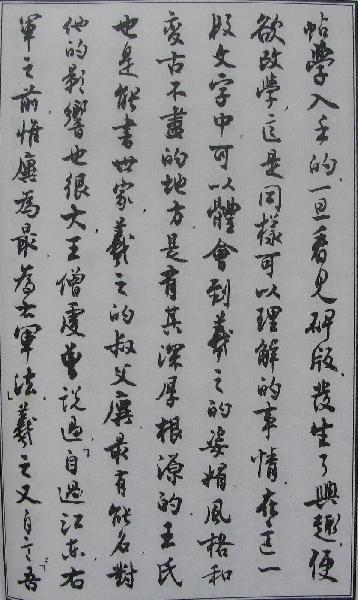 帖學入手的一旦看見碑版發生了興趣便
欲改學這是同樣可以理解的事情在這一
段文字中可以體會到羲之的姿媚風格和
變古不盡的地方是有其深厚根源的王氏
也是能書世家羲之的叔父廙最有能名對
他的影響也很大王僧虔曾說過「自過江東右
軍之前惟廙為最為右軍法」羲之又自言「吾